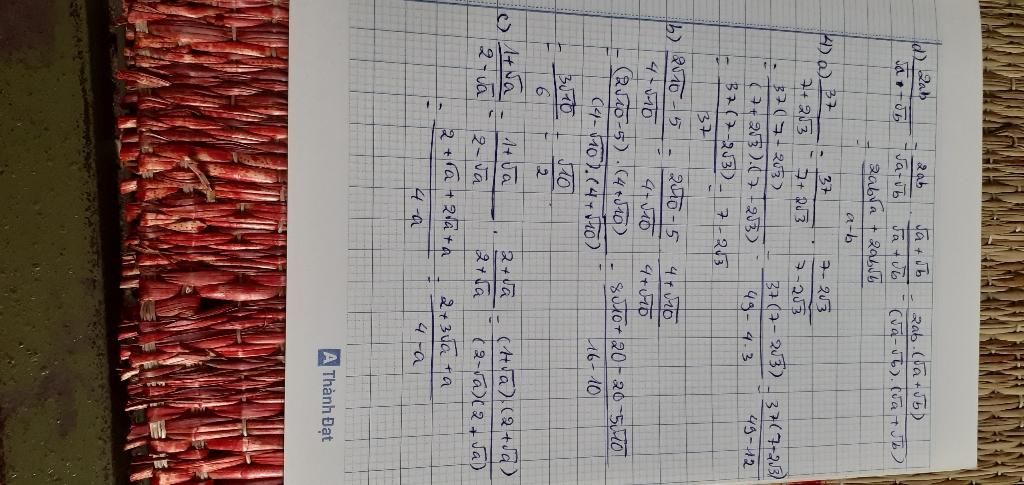 d) 2ab/(√a - √b) = 2ab/(√a - √b) . (√a + √b)/(√a + √b) = 2ab.(√a + √b)/((√a - √b).(√a + √b))
= (2ab√a + 2ab√b)/(a-b)
a) 37/(7+2√3) = 37/(7+2√3) . (7-2√3)/(7-2√3)
= 37(7-2√3)/((7+2√3).(7-2√3)) = 37(7-2√3)/(49-4.3) = 37(7-2√3)/(49-12)
= 37(7-2√3)/37 = 7-2√3
b) (2√10-5)/(4-√10) = (2√10-5)/(4-√10) . (4+√10)/(4+√10)
= (2√10-5).(4+√10)/((4-√10).(4+√10)) = (8√10+20-20-5√10)/(16-10)
= 3√10/6 = √10/2
c) (1+√a)/(2-√a) = (1+√a)/(2-√a) . (2+√a)/(2+√a) = (1+√a)(2+√a)/((2-√a)(2+√a))
= (2+√a+2√a+a)/(4-a) = (2+3√a+a)/(4-a)
A Thành Đạt